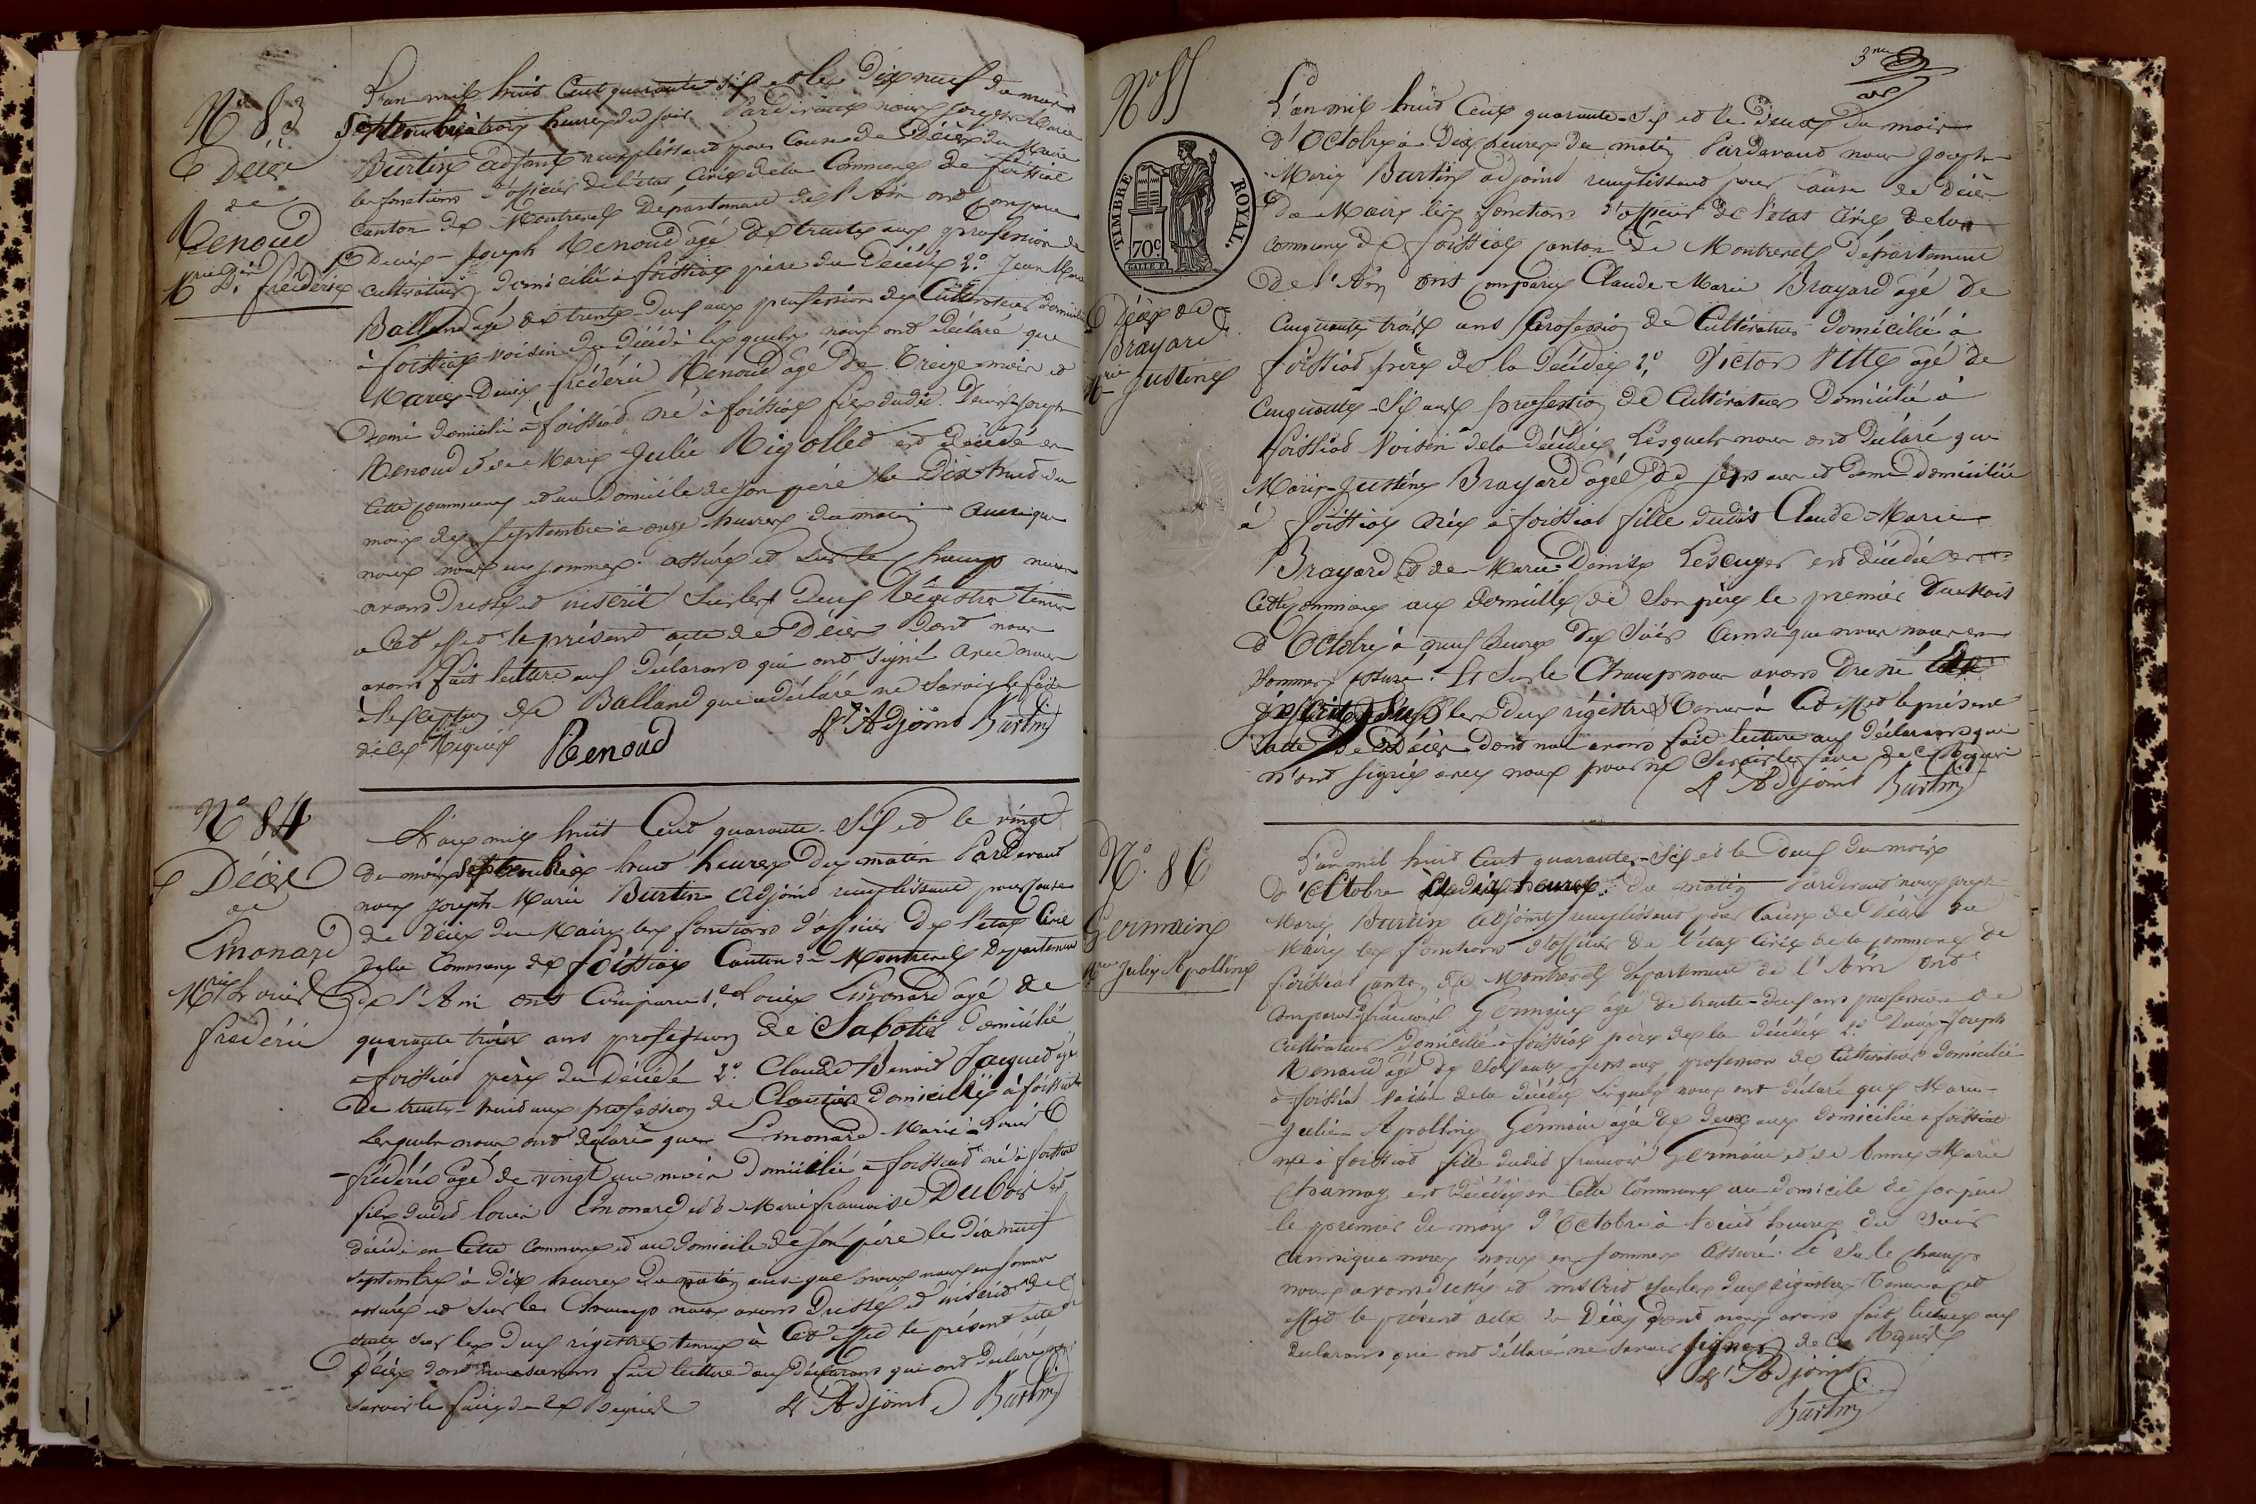 N° 83
Décès
de
Renoud
Mie Dis frédéric
L'an mil huit Cent quarante six et le Dix neuf du mois
Septembre à trois heures du soir Pardevant nous joseph Marie
Burtin adjoint remplissant pour Cause de Décès du Maire
les fonctions d'officier de l'état Civil de la Commune de foissiat
Canton de Montrevel Département de l'Ain ont comparu
Denis-Joseph Renoud agé de trente ans profession de
Cultivateur domicilié à foissiat père du Décédé 2° Jean Marie
Balland agé de trente-Deux ans profession de Cultivateur domicilié
à foissiat voisin du décédé lesquels nous ont Déclaré que
Marie-Denis frédéric Renoud agé de Treize mois et
Demi domicilié à foissiat né à foissiat fils dudit Denis-Joseph
Renoud et de Marie Julie Rigollet est décédé en
Cette Commune et au Domicile de son père le Dix-huit du
mois de Septembre à onze heures du matin Ainsi que
nous nous en sommes assuré et sur le Champ nous
avons Dressé et inscrit sur les Deux Régistres tenus
à Cet effet le présent acte de Décès Dont nous
avons fait lecture aux Déclarans qui ont signé avec nous
de Balland qui a déclaré ne savoir le faire
de ce Requis Renoud L'Adjoint Burtin
N° 84
Décès
de
Emonard
Mrie Louis
frédéric
L'an mil huit Cent quarante-Six et le vingt
du mois Septembre huit heures du matin Pardevant
nous Joseph-Marie Burtin Adjoint remplissant pour Cause
de Décès du Maire les fonctions d'officier de l'état Civil
de la Commune de foissiat Canton de Montrevel Département
de l'Ain ont Comparu 1° Louis Emonard agé de
quarante trois ans profession de Sabotier Domicilié
à foissiat père du Décédé 2° Claude Benoit Jacquet agé
De trente-huit ans profession de Cloutier domicilié à foissiat
Lesquels nous ont déclaré que Emonard Marie-Louis
frédéric agé de vingt un mois Domicilié à foissiat né à foissiat
fils dudit Louis Emonard et de Marie françoise Dubois est
décédé en Cette Commune et au domicile de son père le dix neuf
Septembre à Dix heures du matin ainsi que nous nous en sommes
assuré et sur le Champ nous avons Dressé et inscrit de
suite sur les Deux régistres tenus à Cet effet le présent acte de
Décès dont nous avons fait lecture aux Déclarans qui ont Déclaré ne
savoir le faire de ce Requis L'Adjoint Burtin
3me
N° 85
TIMBRE ROYAL.
70c
Décès de
Brayard
Mrie Justine
L'an mil huit Cent quarante-Six et le Deux Du mois
d'Octobre à Dix heures du matin Pardevant nous Joseph
Marie Burtin adjoint remplissant pour Cause de Décès
Du Maire les fonctions d'officier de l'état Civil de la
Commune de foissiat Canton de Montrevel Département
De l'Ain ont Comparu Claude-Marie Brayard agé de
Cinquante trois ans Profession de Cultivateur Domicilié à
foissiat père de la Décédée 2° Victor Vitte agé de
Cinquante-Six ans profession de Cultivateur Domicilié à
foissiat Voisin de la Décédée, Lesquels nous ont Déclaré que
Marie-Justine Brayard agée de sept ans et Demi domiciliée
à foissiat Née à foissiat fille dudit Claude-Marie
Brayard et de Marie-Denise Lescuyer est décédée en
Cette Commune au Domicille de Son père le premier Du Mois
d'Octobre à neuf heures du Soir Ainsi que nous nous en
Sommes assuré. Et Sur le Champ nous avons Dressé
inscrit sur les Deux régistres Tenus à Cet effet le présent
acte de Décès Dont nous avons fait lecture aux Déclarans qui
n'ont signé avec nous pour ne Savoir le faire de ce Requis
L'Adjoint Burtin
N° 86
Germain
Mrie Julie Apolline
L'an mil huit Cent quarante-Six et le Deux du mois
d'Octobre à dix heures du matin Pardevant nous Joseph-
Marie Burtin Adjoint remplissant pour Cause de Décès du
Maire les fonctions d'officier de l'état Civil de la Commune de
foissiat Canton de Montrevel Département de l'Ain ont
Comparu françois Germain agé de trente-deux ans profession de
Cultivateur Domicilié à foissiat père de la décédée 2° Denis-Joseph
Renoud agé de soixante-sept ans profession de Cultivateur domicilié
à foissiat Voisin de la décédée Lesquels nous ont déclaré que Marie-
Julie-Apolline Germain agée de Deux ans domiciliée à foissiat
née à foissiat fille dudit françois Germain et de Anne-Marie
Charnay est Décédée en Cette Commune au domicile de son père
le premier du mois d'Octobre à huit heures du Soir
Ainsi que nous nous en Sommes Assuré. Et Sur le Champ
nous avons dressé et inscrit sur les deux régistres Tenus à Cet
effet le présent acte de Décès dont nous avons fait lecture aux
Déclarans qui ont déclaré ne savoir signer de ce Requis
L'Adjoint
Burtin